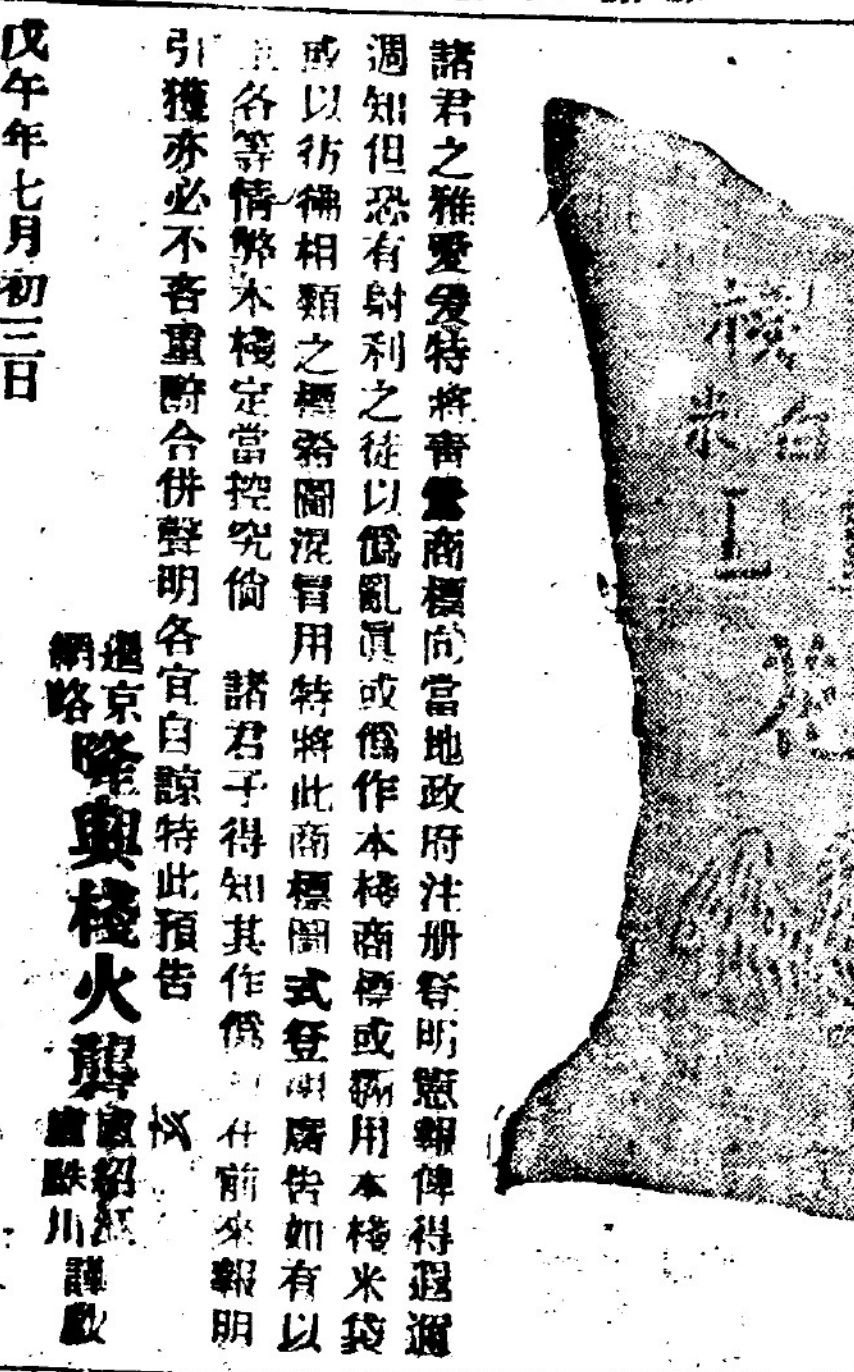 諸君之雅愛爰特將商標向當地政府注册登明憲報俾得遐邇
週知但恐有射利之徒以僞亂眞或僞作本棧商標或用本棧米袋
或以彷彿相類之標希圖混冒用特將此商標圖式登明廣告如有以
上各等情弊本棧定當控究倘 諸君子得知其作僞所在前來報明
引獲亦必不吝重酬合併聲明各宜自諒特此預告
暹京
網略
隆興棧火礱
盧紹
盧川
謹啟
戊午年七月初三日
棧
米
白
工